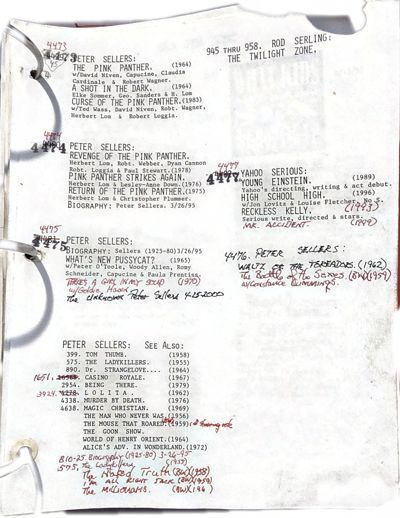 945 THRU 958. ROD SERLING:
THE TWILIGHT ZONE.
4473
4473
PETER SELLERS:
THE PINK PANTHER. (1964)
w/David Niven, Capucine, Claudia
Cardinale & Robert Wagner.
A SHOT IN THE DARK. (1964)
Elke Sommer, Geo. Sanders & H. Lom
CURSE OF THE PINK PANTHER.(1983)
w/Ted Wass, David Niven, Robt. Wagner,
Herbert Lom & Robert Loggia.
4474
PETER SELLERS:
REVENGE OF THE PINK PANTHER.
Herbert Lom, Robt. Webber, Dyan Cannon
Robt. Loggia & Paul Stewart.(1978)
PINK PANTHER STRIKES AGAIN.
Herbert Lom & Lesley-Anne Down.(1976)
RETURN OF THE PINK PANTHER.(1975)
Herbert Lom & Christopher Plummer.
BIOGRAPHY: Peter Sellers. 3/26/95
4477
YAHOO SERIOUS:
YOUNG EINSTEIN. (1989)
Yahoo's directing, writing & act debut.
HIGH SCHOOL HIGH. (1996)
w/Jon Lovitz & Louise Fletcher.
RECKLESS KELLY. (1993)
Serious write, directed & stars.
MR. ACCIDENT. (1999)
4475
4475
PETER SELLERS:
BIOGRAPHY: Sellers (1925-80)3/26/95
WHAT'S NEW PUSSYCAT? (1965)
w/Peter O'Toole, Woody Allen, Romy
Schneider, Capucine & Paula Prentiss.
THERE'S A GIRL IN MY SOUP (1970)
w/Goldie Hawn
The Unknown Peter Sellers 4-25-2000
4476. PETER SELLERS:
WALTZ OF THE TOREADORS. (1962)
The Battle of the Sexes. (BW)(1959)
w/Constance Cummings.
PETER SELLERS: SEE ALSO:
399. TOM THUMB. (1958)
575. THE LADYKILLERS. (1955)
890. Dr. STRANGELOVE.... (1964)
1651. CASINO ROYALE. (1967)
2954. BEING THERE. (1979)
3924. L O L I T A. (1962)
4338. MURDER BY DEATH. (1976)
4638. MAGIC CHRISTIAN. (1969)
THE MAN WHO NEVER WAS.(1956)
THE MOUSE THAT ROARED.(1959)
THE GOON SHOW.
WORLD OF HENRY ORIENT.(1964)
ALICE'S ADV. IN WONDERLAND.(1972)
810-25. Biography (1925-80) 3-26-95
575. The Ladykillers (1955)
The Naked Truth (BW)(1958)
I'm All Right Jack (BW)(1959)
The Millionairess. (BW)